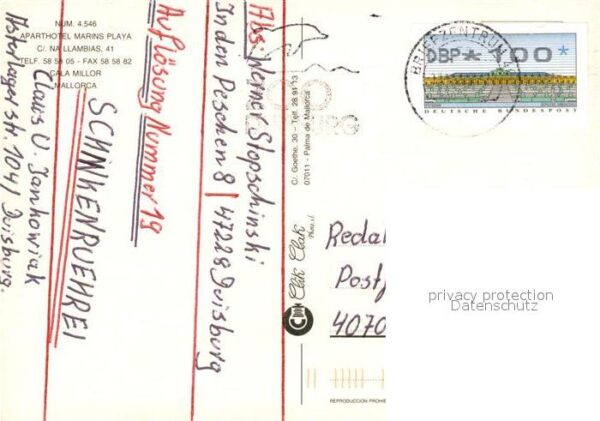 NUM. 4.546
APARTHOTEL MARINS PLAYA
C/. NA LLAMBIAS, 41
TELF. 58 58 05 - FAX 58 58 82
CALA MILLOR
MALLORCA
Claus U. Jankowiak
SCHINKENRUEHREI
Auflösung Nummer 19
Abs: Werner Slopschinski
In den Peschen 8 | 47228 Duisburg
C/. Goethe, 30 – Telf. 28 91 13
07011 - Palma de Mallorca
Clik Clak
BRIEFZENTRUM
DBP* 00*
DEUTSCHE BUNDESPOST
Postf
4070
privacy protection
Datenschutz